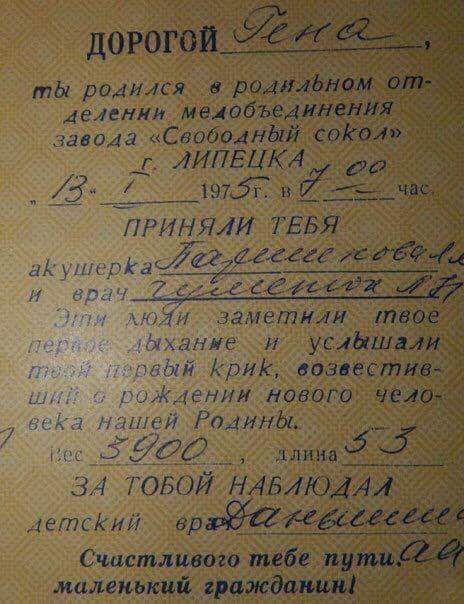 ДОРОГОЙ Гена,
ты родился в родильном от-
делении медобъединения
завода «Свободный сокол»
г. ЛИПЕЦКА
„ 13 - I 1975 г. в 7 00 час.
ПРИНЯЛИ ТЕБЯ
акушерка
и врач
Эти люди заметили твое
первое дыхание и услышали
твой первый крик, возвестив-
ший о рождении нового чело-
века нашей Родины.
Вес 3900, длина 53
ЗА ТОБОЙ НАБЛЮДАЛ
детский врач
Счастливого тебе пути,
маленький гражданин!